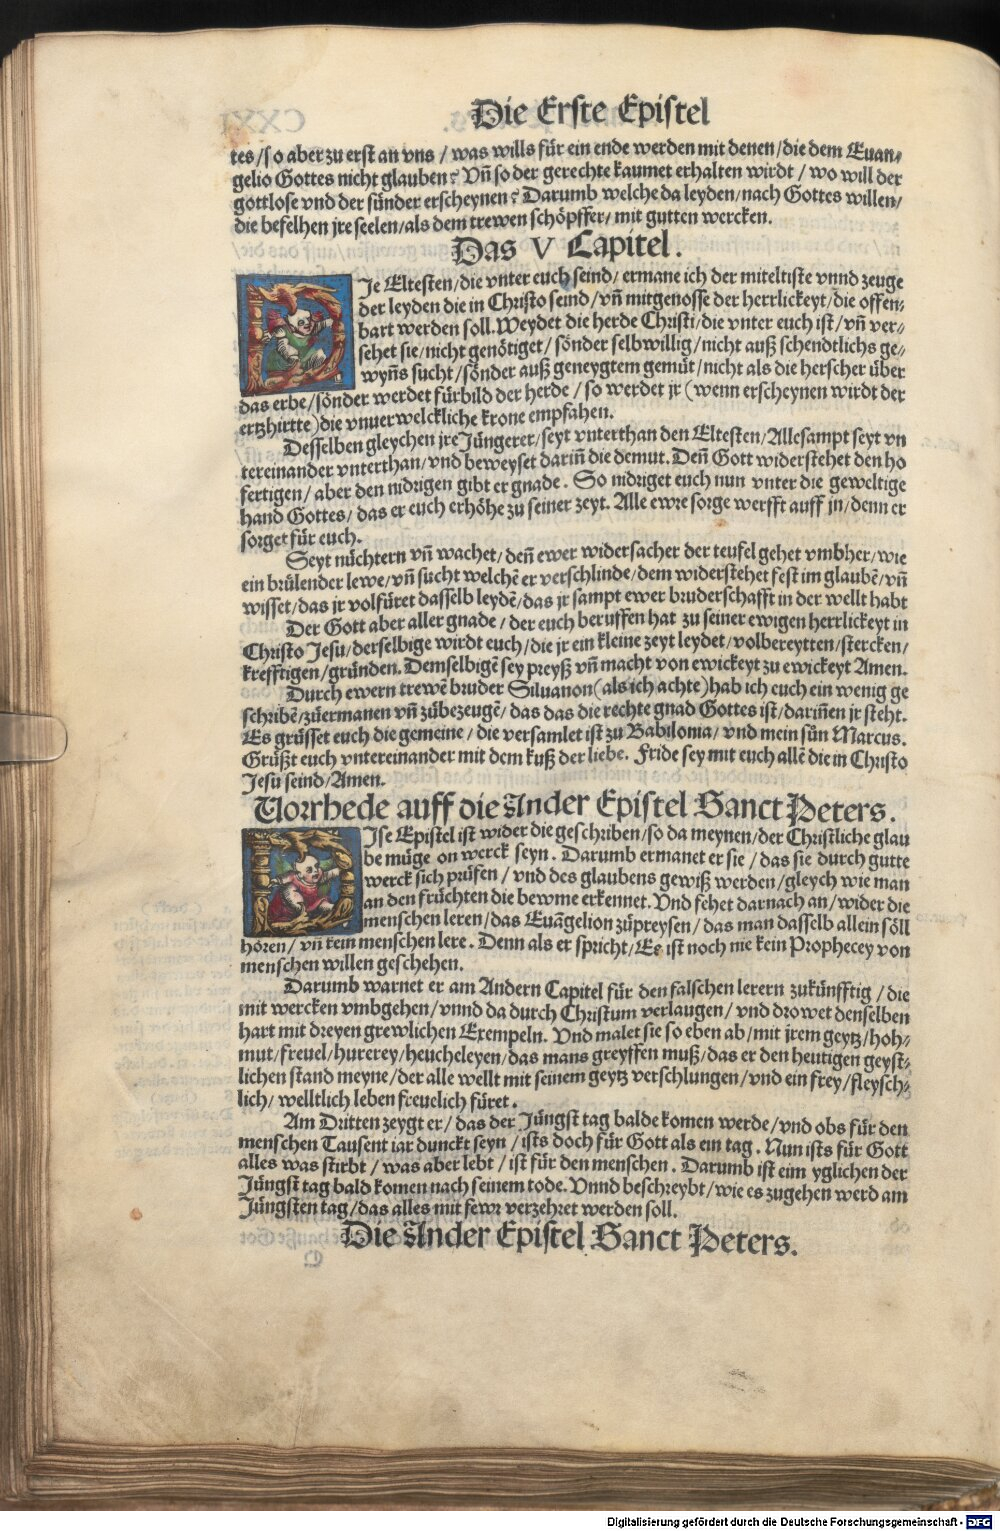 Die Erste Epistel
tes/so aber zu erst an vns/was wills für ein ende werden mit denen/die dem Euan-
gelio Gottes nicht glauben? Vñ so der gerechte kaumet erhalten wirdt/wo will der
gottlose vnd der sünder erscheynen? Darumb welche da leyden/nach Gottes willen/
die befelhen jre seelen/als dem trewen schöpffer/mit gutten wercken.
Das V Capitel.
DJe Eltesten/die vnter euch seind/ermane ich der miteltiste vnnd zeuge
der leyden die in Christo seind/vñ mitgenosse der herrlickeyt/die offen-
bart werden soll. Weydet die herde Christi/die vnter euch ist/vñ ver-
sehet sie/nicht genötiget/sönder selbwillig/nicht auß schendtlichs ge-
wyñs sucht/sönder auß geneygtem gemüt/nicht als die herscher über
das erbe/sönder werdet fürbild der herde/so werdet jr (wenn erscheynen wirdt der
ertzhirtte) die vnuerwelckliche krone empfahen.
Desselben gleychen jre Jüngerer/seyt vnterthan den Eltesten/Allesampt seyt vn
tereinander vnterthan/vnd beweyset dariñ die demut. Deñ Gott widerstehet den ho
fertigen/aber den nidrigen gibt er gnade. So nidriget euch nun vnter die geweltige
hand Gottes/das er euch erhöhe zu seiner zeyt. Alle ewre sorge werfft auff jn/denn er
sorget für euch.
Seyt nüchtern vñ wachet/deñ ewer widersacher der teufel gehet vmbher/wie
ein brülender lewe/vñ sucht welchē er verschlinde/dem widerstehet fest im glaubē/vñ
wisset/das jr volfüret dasselb leydē/das jr sampt ewer bruderschafft in der wellt habt
Der Gott aber aller gnade/der euch beruffen hat zu seiner ewigen herrlickeyt in
Christo Jesu/derselbige wirdt euch/die jr ein kleine zeyt leydet/volbereytten/stercken/
krefftigen/gründen. Demselbigē sey preyß vñ macht von ewickeyt zu ewickeyt Amen.
Durch ewern trewē bruder Siluanon (als ich achte) hab ich euch ein wenig ge
schribē/züermanen vñ zübezeugē/das das die rechte gnad Gottes ist/dariñen jr steht.
Es grüsset euch die gemeine/die versamlet ist zu Babilonia/vnd mein sün Marcus.
Grüßt euch vntereinander mit dem kuß der liebe. Fride sey mit euch allē die in Christo
Jesu seind/Amen.
Vorrhede auff die Ander Epistel Sanct Peters.
DJse Epistel ist wider die geschriben/so da meynen/der Christliche glau
be müge on werck seyn. Darumb ermanet er sie/das sie durch gutte
werck sich prüfen/vnd des glaubens gewiß werden/gleych wie man
an den früchten die bewme erkennet. Vnd fehet darnach an/wider die
menschen leren/das Euāgelion züpreysen/das man dasselb allein söll
hören/vñ kein menschen lere. Denn als er spricht/Es ist noch nie kein Prophecey von
menschen willen geschehen.
Darumb warnet er am Andern Capitel für den falschen lerern zukünfftig/die
mit wercken vmbgehen/vnnd da durch Christum verlaugen/vnd drowet denselben
hart mit dreyen grewlichen Exempeln. Vnd malet sie so eben ab/mit jrem geytz/hoh-
mut/freuel/hurerey/heucheleyen/das mans greyffen muß/das er den heutigen geyst-
lichen stand meyne/der alle wellt mit seinem geytz verschlungen/vnd ein frey/fleysch-
lich/welltlich leben freuelich füret.
Am Dritten zeygt er/das der Jüngst tag balde komen werde/vnd obs für den
menschen Tausent iar dunckt seyn/ists doch für Gott als ein tag. Nun ists für Gott
alles was stirbt/was aber lebt/ist für den menschen. Darumb ist eim yglichen der
Jüngst tag bald komen nach seinem tode. Vnnd beschreybt/wie es zugehen werd am
Jüngsten tag/das alles mit fewr verzehret werden soll.
Die Ander Epistel Sanct Peters.
Digitalisierung gefördert durch die Deutsche Forschungsgemeinschaft - DFG